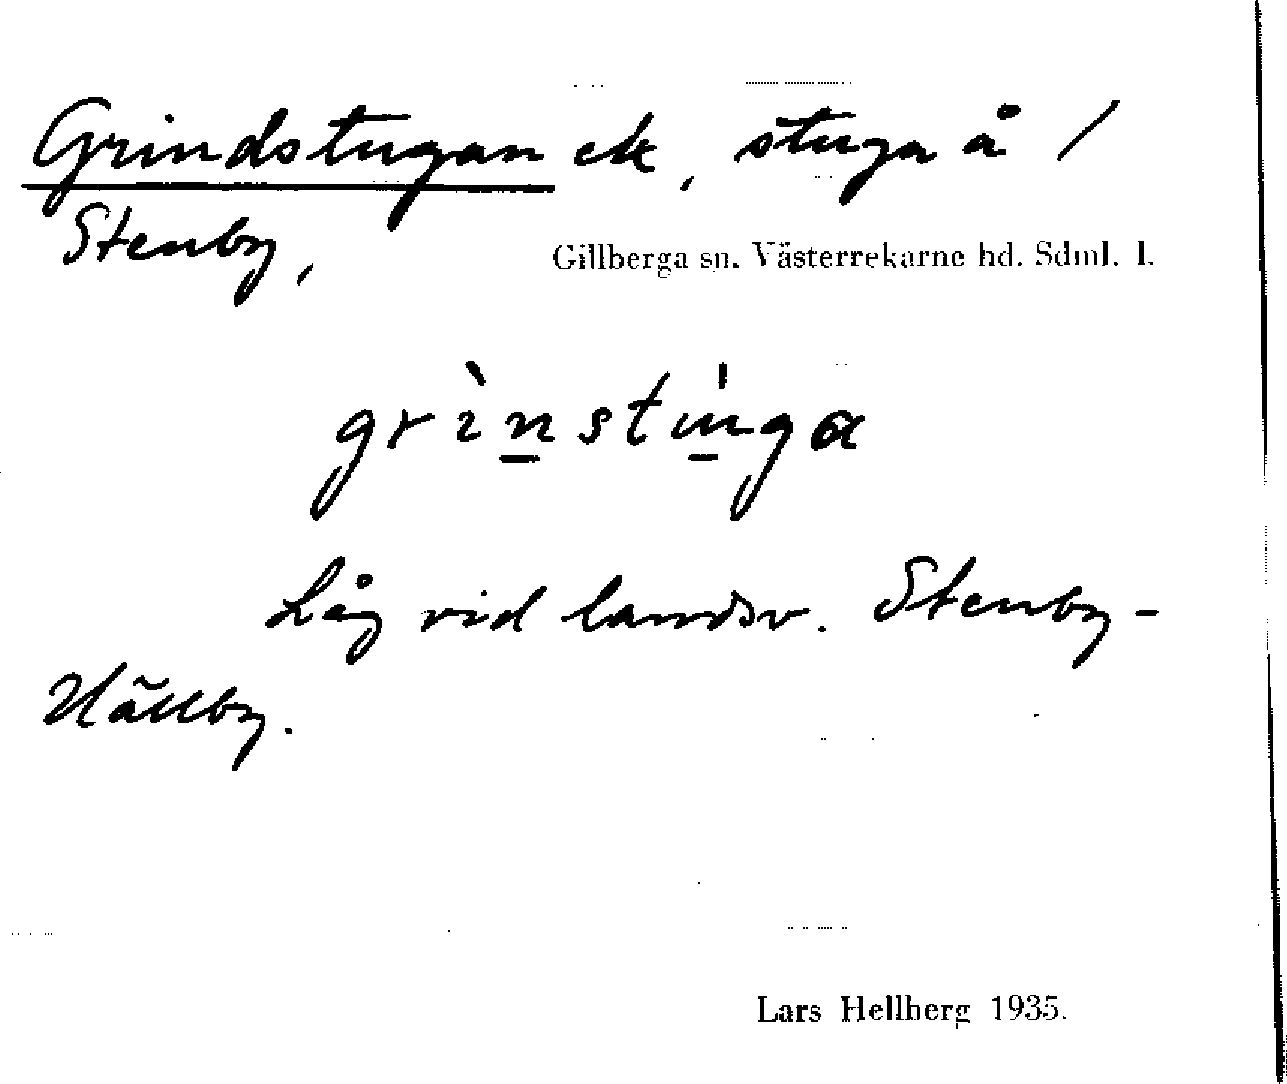 Grindstugan ek, stuga å /
Stenby,
Gillberga sn. Västerrekarne hd. Sdml. l.
grìnstúga
Låg vid landsv. Stenby-
Hällby.
Lars Hellberg 1935.